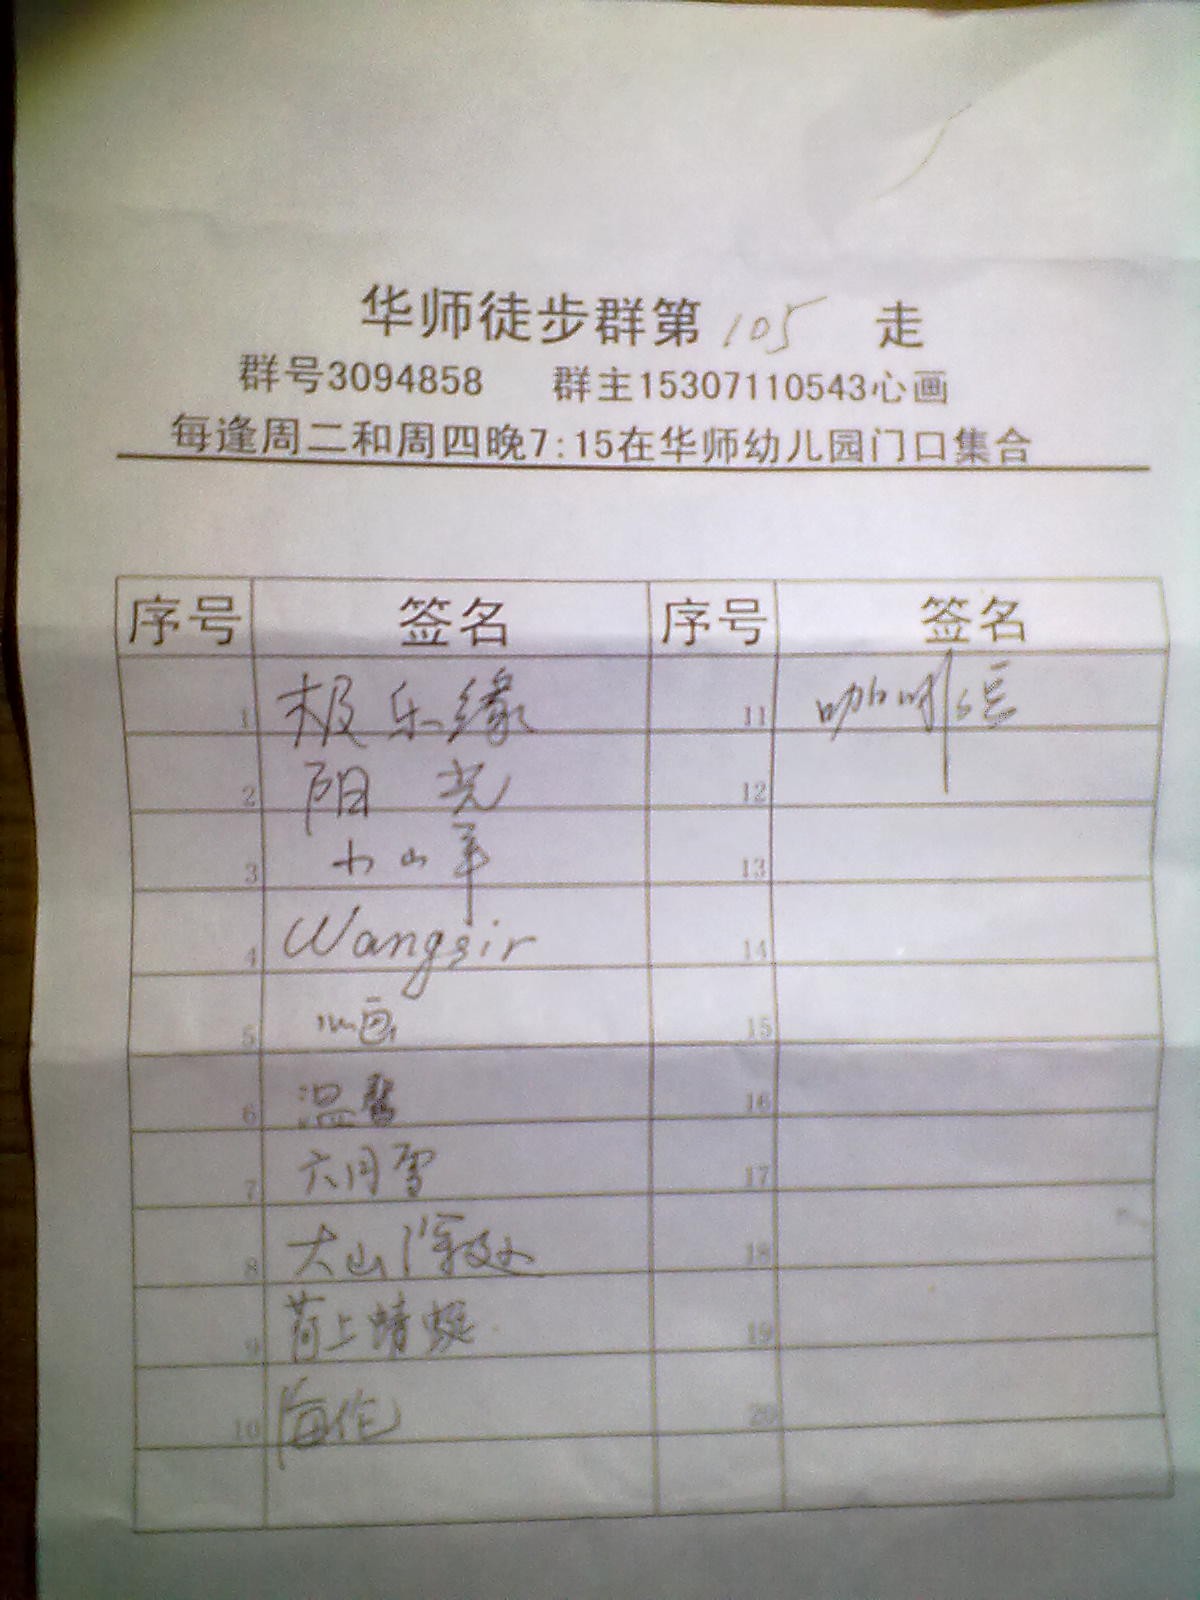 华师徒步群第 105 走
群号3094858 群主15307110543心画
每逢周二和周四晚7:15在华师幼儿园门口集合
序号 签名 序号 签名
1 极乐缘 11 咖啡豆
2 阳光 12
3 小山羊 13
4 Wangsir 14
5 心画 15
6 温馨 16
7 六月雪 17
8 大山深处 18
9 荷上蜻蜓 19
10 20